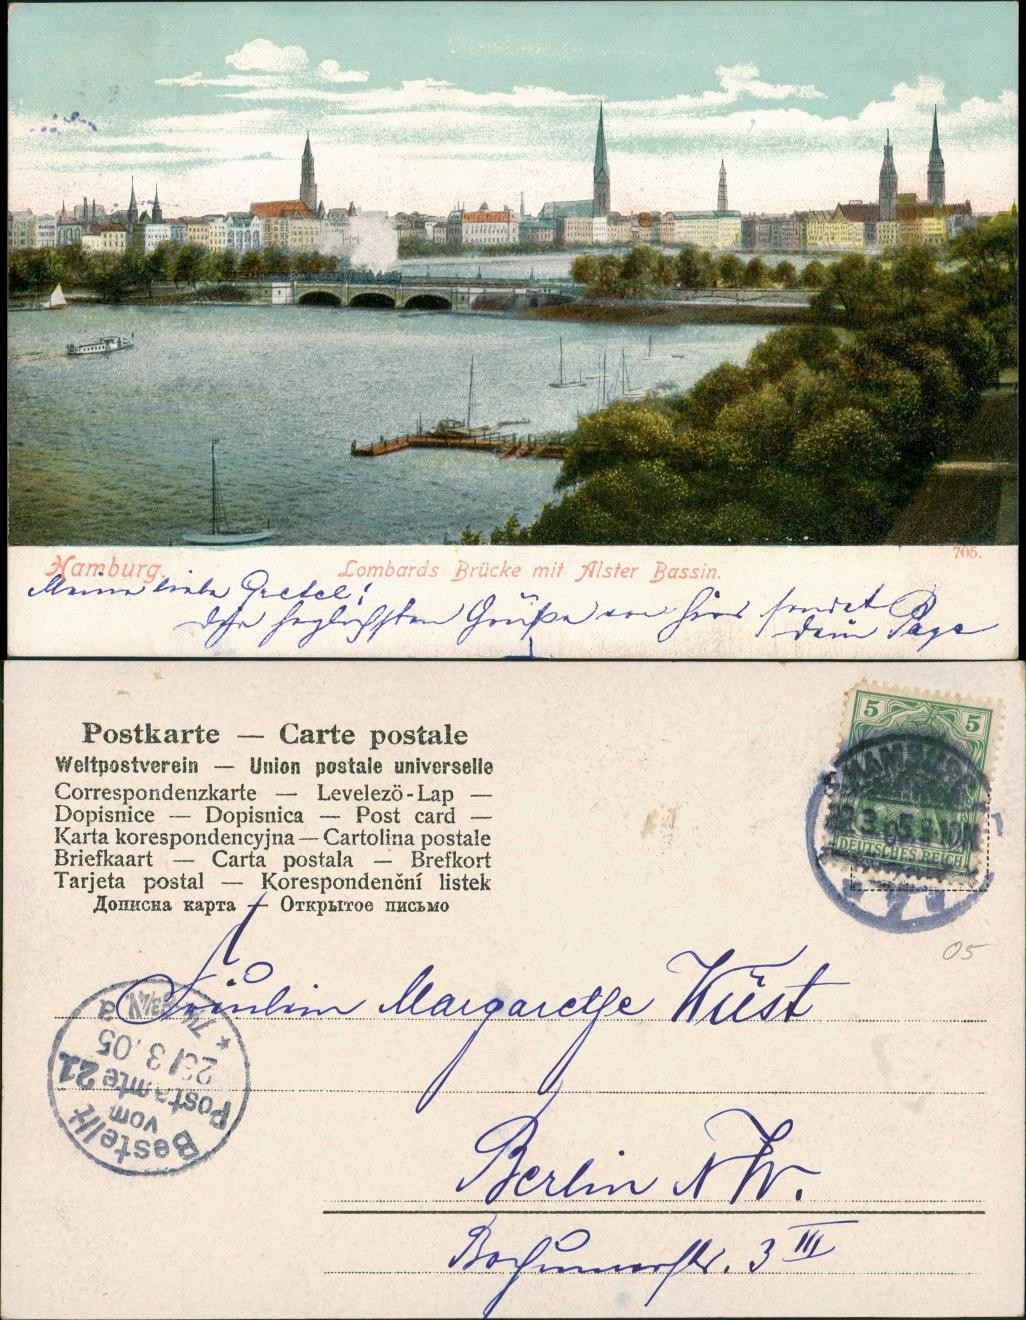 705.
Hamburg. Lombards Brücke mit Alster Bassin.
Meine liebe Gretel!
die herzlichsten Grüße von hier sendet
dein
Postkarte — Carte postale
Weltpostverein — Union postale universelle
Correspondenzkarte — Levelező-Lap —
Dopisnice — Dopisnica — Post card —
Karta korespondencyjna — Cartolina postale
Briefkaart — Carta postala — Brefkort
Tarjeta postal — Korespondenční listek
Дописна карта — Открытое письмо
5 5
HAMBURG
3.05.9-10N
DEUTSCHES REICH
05
Fräulein Margarethe Wüst
Berlin N.W.
Bochumerstr. 3 III
Bestellt
vom
Postamte 21
23/3.05